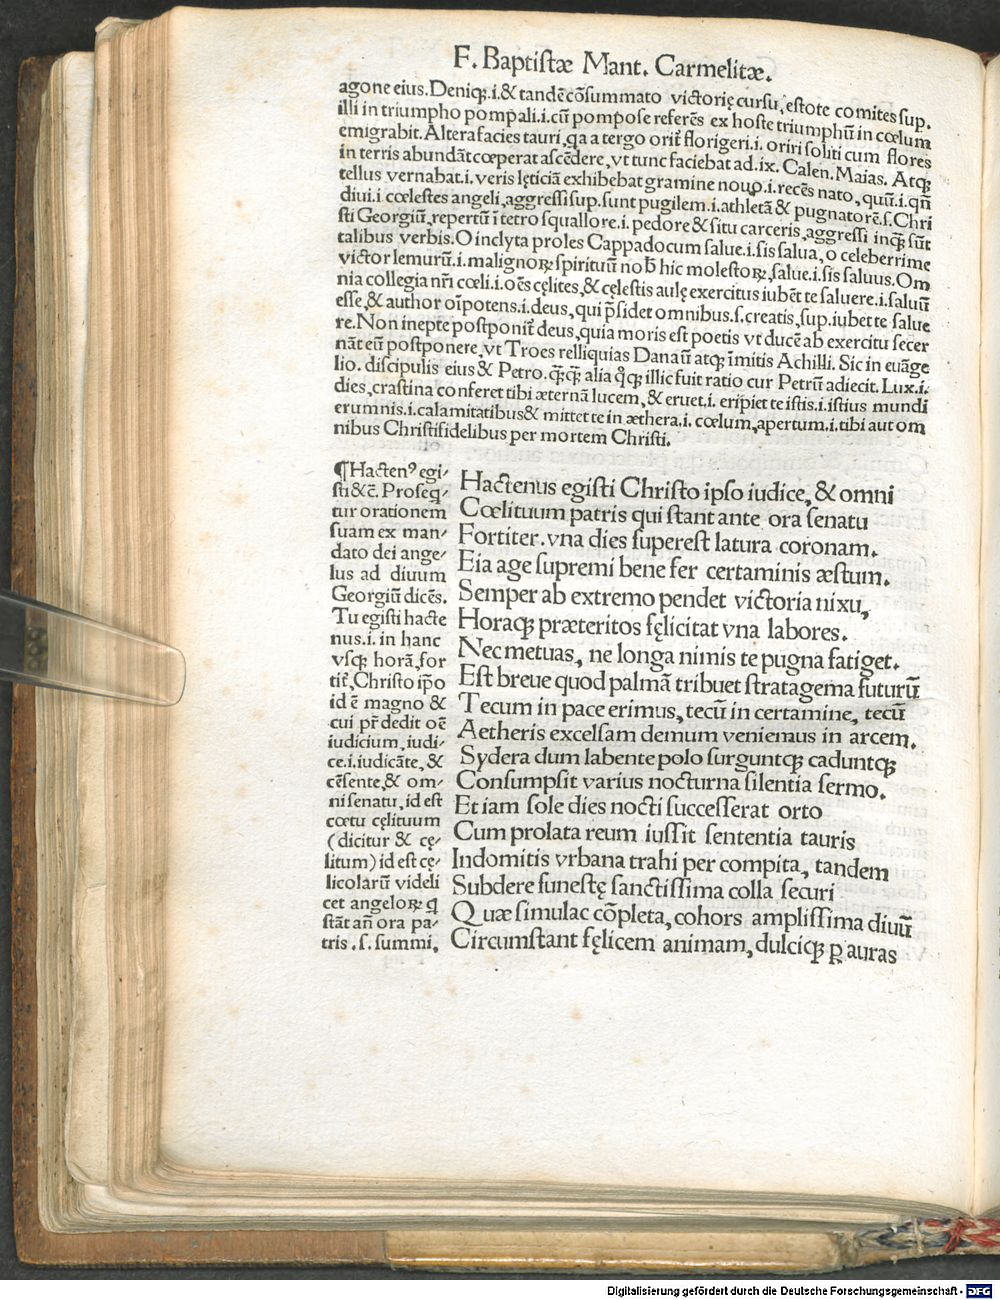 F. Baptistæ Mant. Carmelitæ.
agone eius. Deniqꝫ .i. & tandē cōsummato victorię cursu, estote comites sup.
illi in triumpho pompali .i. cū pompose referēs ex hoste triumphū in cœlum
emigrabit. Altera facies tauri, qa a tergo orit᷑ florigeri .i. oriri soliti cum flores
in terris abundāt cœperat ascēdere, vt tunc faciebat ad .ix. Calen. Maias. Atqꝫ
tellus vernabat .i. veris lęticiā exhibebat gramine nouo .i. recēs nato, quū .i. qn̄
diui .i. cœlestes angeli, aggressi sup. sunt pugilem .i. athletā & pugnatorē .s. Chri
sti Georgiū, repertū ī tetro squallore .i. pedore & situ carceris, aggressi inqꝫ sūt
talibus verbis. O inclyta proles Cappadocum salue .i. sis salua, o celeberrime
victor lemurū .i. malignoꝝ spirituū nob̄ hic molestoꝝ, salue .i. sis saluus. Om
nia collegia nr̄i cœli .i. oēs cęlites, & cęlestis aulę exercitus iubēt te saluere .i. saluū
esse, & author oīpotens .i. deus, qui p̄sidet omnibus .s. creatis, sup. iubet te salue
re. Non inepte postponit᷑ deus, quia moris est poetis vt ducē ab exercitu secer
nāt eū postponere, vt Troes relliquias Danaū atqꝫ īmitis Achilli. Sic in euāge
lio. discipulis eius & Petro. qꝫqꝫ alia q̊qꝫ illic fuit ratio cur Petrū adiecit. Lux .i.
dies, crastina conferet tibi æternā lucem, & eruet .i. eripiet te istis .i. istius mundi
erumnis .i. calamitatibus & mittet te in æthera .i. cœlum, apertum .i. tibi aut om
nibus Christifidelibus per mortem Christi.
¶ Hacten⁹ egi-
sti &c̄. Proseq-
tur orationem
suam ex man-
dato dei ange-
lus ad diuum
Georgiū dicēs.
Tu egisti hacte
nus .i. in hanc
vsqꝫ horā, for
tit᷑, Christo ip̄o
id ē magno &
cui pr̄ dedit oē
iudicium, iudi-
ce .i. iudicāte, &
cēsente, & om-
ni senatu, id est
cœtu cęlituum
(dicitur & cę-
litum) id est cę-
licolarū videli
cet angeloꝝ q
stāt an̄ ora pa-
tris .s. summi.
Hactenus egisti Christo ipso iudice, & omni
Cœlituum patris qui stant ante ora senatu
Fortiter. vna dies superest latura coronam.
Eia age supremi bene fer certaminis æstum.
Semper ab extremo pendet victoria nixu,
Horaqꝫ præteritos fęlicitat vna labores.
Nec metuas, ne longa nimis te pugna fatiget.
Est breue quod palmā tribuet stratagema futurū
Tecum in pace erimus, tecū in certamine, tecū
Aetheris excelsam demum veniemus in arcem.
Sydera dum labente polo surguntqꝫ caduntqꝫ
Consumpsit varius nocturna silentia sermo.
Et iam sole dies nocti successerat orto
Cum prolata reum iussit sententia tauris
Indomitis vrbana trahi per compita, tandem
Subdere funestę sanctissima colla securi
Quæ simulac cōpleta, cohors amplissima diuū
Circumstant fęlicem animam, dulciqꝫ ꝑ auras
Digitalisierung gefördert durch die Deutsche Forschungsgemeinschaft - DFG